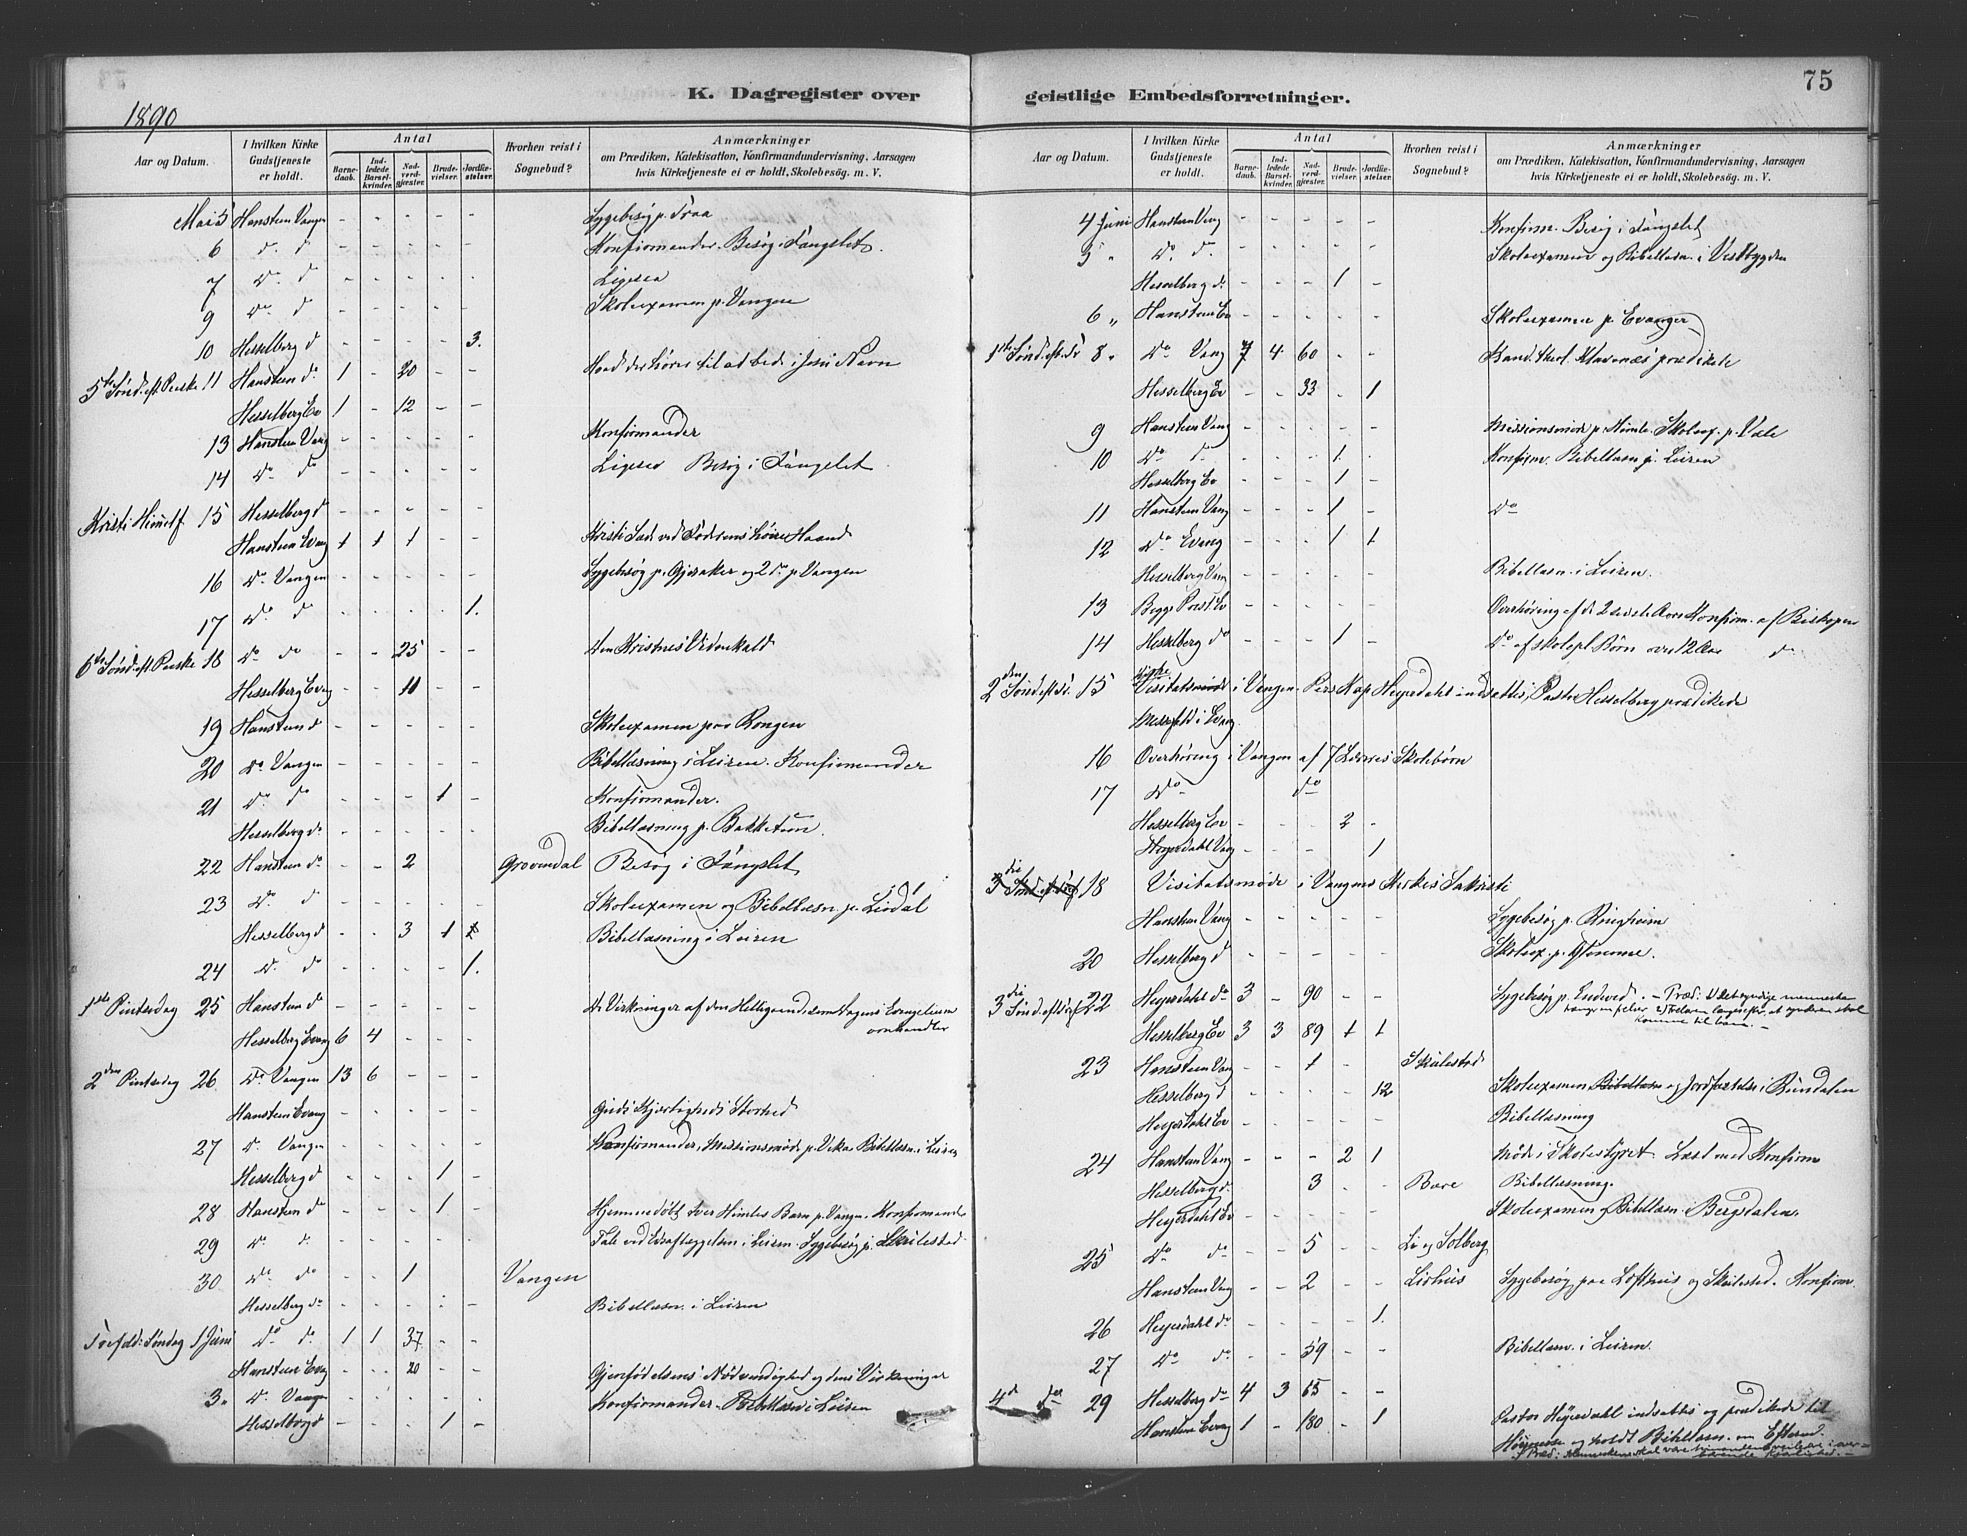 75
K. Dagregister over geistlige Embedsforretninger.
1890
Aar og Datum. I hvilken Kirke Gudstjeneste er holdt. Antal Barnedaab. Indledede Barselkvinder. Nadverdgjester. Brudevielser. Jordfæstelser. Hvorhen reist i Sognebud? Anmærkninger om Prædiken, Katekisation, Konfirmandundervisning, Aarsagen hvis Kirketjeneste ei er holdt, Skolebesög. m. V.
Mai 5 Hansteen Vangen - - - - - Sygebesøg p. Traa
6 do do - - - - - Konfirmander. Besøg i Fængslet.
7 Do do - - - - - Ligesaa
9 Do do - - - - - Skoleexamen p. Vangen
10 Hesselberg d - - - - 3.
5te Sønd. eft. Paaske 11 Hansteen do 1 - 20 - - Hvad der hører til at bede i Jesu Navn
Hesselberg Ev 1 - 12 - -
13 Hansteen Vang - - - - - Konfirmander
14 Do do - - - - - Ligesaa Besøg i Fængslet
Kristi Himelf 15 Hesselberg d - - - - -
Hansteen Evang 1 1 1 - - Kristi Sæde ved Faderens høire Haand
16 Do Vangen - - - - - Sygebesøg p. Gjeraker og 2 do p. Vangen
17 Do do - - - - 1.
6te Sønd. eft. Paaske 18 Do do - - 25 - - Den Kristnes Vidnekald
Hesselberg Evang - - 11 - -
19 Hansteen d - - - - - Skoleexamen paa Rongen
20 Do Vangen - - - - - Bibellæsning i Leiren. Konfirmander
21 Do do - - - 1 - Konfirmander.
Hesselberg do - - - - - Bibellæsning p. Bakketun.
22 Hansteen do - - 2 - - Grovendal Besøg i Fængslet
23 Do d - - - - - Skoleexamen og Bibellæsn. p. Lirdal
Hesselberg d - - 3 1 1 Bibellæsning i Leiren
24 Do do - - - - 1.
1ste Pintsedag 25 Hansteen do - - - - - De Virkninger af den Helligaand, som Dagens Evangelium omhandler
Hesselberg Evang 6 4
2den Pintsedag 26 Do Vangen 13 6 - - -
Hansteen Evang - - - - - Guds Kjærligheds Storhed
27 Do Vangen - - - - - Konfirmander, Missionsmøde p. Veka Bibellæsn. i Leiren
Hesselberg d - - - 1 -
28 Hansteen do - - - 1 - Hjemmedøbt Iver Himles Barn p. Vangen. Konfirmander
29 Do do - - - - - Tale ved Edsaflæggelsen i Leiren. Sygebesøg p. Skulestad.
30 Do do - - 1 - - Vangen
Hesselberg do - - - - - Bibellæsn. i Leiren
Trefold: Søndag 1 Juni Do do 1 1 37 - -
Hansteen Evang - - 20 - - Gjenfødelsens Nødvendighed og dens Virkninger
3. Do Vangen - - - - - Konfirmander. Bibellæsn i Leiren
Hesselberg d - - - 1 -
Aar og Datum. I hvilken Kirke Gudstjeneste er holdt. Antal Barnedaab. Indledede Barselkvinder. Nadverdgjester. Brudevielser. Jordfæstelser. Hvorhen reist i Sognebud? Anmærkninger om Prædiken, Katekisation, Konfirmandundervisning, Aarsagen hvis Kirketjeneste ei er holdt, Skolebesög. m. V.
4 Juni Hansteen Vang - - - - - Konfirm. Besøg i Fængslet
5 " Do do - - - - - Skoleexamen og Bibellæsn. i Vestbygden
Hesselberg do - - - 1 -
6 " Hansteen Ev - - - - - Skoleexamen p. Evanger
1ste Sønd. eft. Tr 8 " Do Vang 7 4 60 - - Kand. theol. Klavenæs prædikede
Hesselberg Ev - - 33 - 1
9 Hansteen Vang - - - - - Missionsmøde p. Himle. Skoleex. p. Væle
10 Do do - - - 1 - Konfirm. Bibellæsn p. Leiren
Hesselberg Ev - - - 1 -
11 Hansteen Vang - - - 1 - Do
12 Do Evang - - - 1 1
Hesselberg Vang - - - - - Bibellæsn. i Leiren.
13 Begge Præst Ev - - - - - Overhøring af de 2 sidste Aars Konfirm. af Biskopen
14 Hesselberg do - - - 1 - Do af skolepl Børn over 12 Aar do
2den Sønd. eft. Tr. 15 Visitats i Vangen. Pers. Kap Heyerdahl indsattes, Pastor Hesselberg prædikede
Messefald i Evang
16 Overhøring i Vangen af 7 Læreres Skolebørn
17 Do do
Hesselberg Ev - - - 2 -
Heyerdahl Vang - - - - 1
3die Sønd. eft. Tref 18 Visitatsmøde i Vangens Kirkes Sakristi
Hansteen Vang - - - - - Sygebesøg p. Ringheim
20 Hesselberg d - - - - - Skoleex. p.
3die Sønd. eft. Tref 22 Heyerdahl do 3 - 90 - - Sygebesøg p. - Præd:
Hesselberg Ev 3 3 89 1 1
23 Hansteen Vang - - 1 - - Skulestad
Hesselberg d - - - - 12 Skoleexamen Bibellæsn og Jordfæstelse i Bundalen
Heyerdahl Ev - - - - - Bibellæsning
24 Hansteen Vang - - - 2 1 Møde i Skolestyret. Læst med Konfirm
Hesselberg d. 3 - - Børe Bibellæsning.
Heyerdahl Ev - - - - - Skoleexamen og Bibellæsn. Bergsdalen.
25 Do do - - 5 - - Li og Solberg
Hansteen Vang - - 2 - - Lirhus Sygebesøg paa Lofthus og Skulestad. Konfirm.
26 Heyerdahl do - - - - 1.
27 Do do - - 59 - - Bibellæsn. i Leiren.
4d do 29 Hesselberg do 4 3 65 - -
Hansteen Evang 1 - 180 - 1 Pastor Heyerdahl indsattes og prædikede til
Høimesse og holdt Bibellæsn. om Efterm.